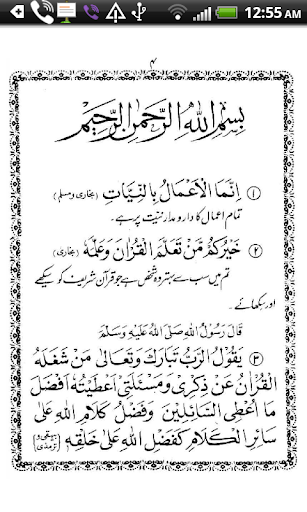 12:55 AM
۴
بِسْمِ اللهِ الرَّحْمٰنِ الرَّحِيْمِ
① اِنَّمَا الْاَعْمَالُ بِالنِّيَّاتِ (بخاری و مسلم)
تمام اعمال کا دارومدار نیت پر ہے۔
② خَيْرُكُمْ مَّنْ تَعَلَّمَ الْقُرْاٰنَ وَعَلَّمَهٗ (بخاری)
تم میں سب سے بہتر وہ شخص ہے جو قرآن شریف کو سیکھے
اور سکھائے۔
قَالَ رَسُوْلُ اللهِ صَلَّى اللهُ عَلَيْهِ وَسَلَّمَ
③ يَقُوْلُ الرَّبُّ تَبَارَكَ وَتَعَالٰى مَنْ شَغَلَهُ
الْقُرْاٰنُ عَنْ ذِكْرِىْ وَمَسْئَلَتِىْ اَعْطَيْتُهٗ اَفْضَلَ
مَا اُعْطِى السَّائِلِيْنَ وَفَضْلُ كَلَامِ اللهِ عَلٰى
سَائِرِ الْكَلَامِ كَفَضْلِ اللهِ عَلٰى خَلْقِهٖ ترمذی